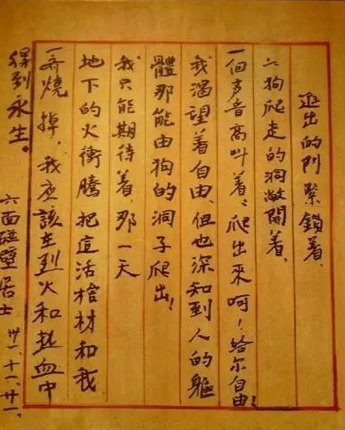 出的門緊鎖着、
狗爬走的洞敞開着、
一個声音高叫着:爬出來呵!給尔自由!
我渴望着自由,但也深知到人的軀
體那能由狗的洞子爬出!
我只能期待着,那一天
地下的火衝騰把這活棺材和我
一齊燒掉,我應該在烈火和热血中
得到永生。
六面碰壁居士 卅一.十一.廿一.